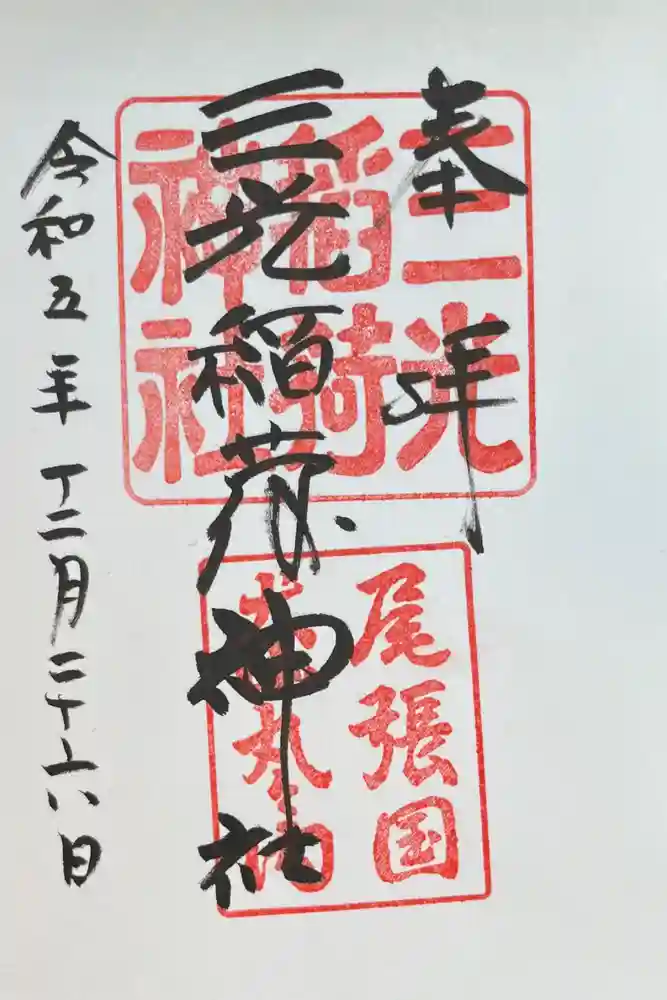 奉拝
三光稲荷神社
令和五年十二月二十六日
三光
稲荷
神社
尾張国